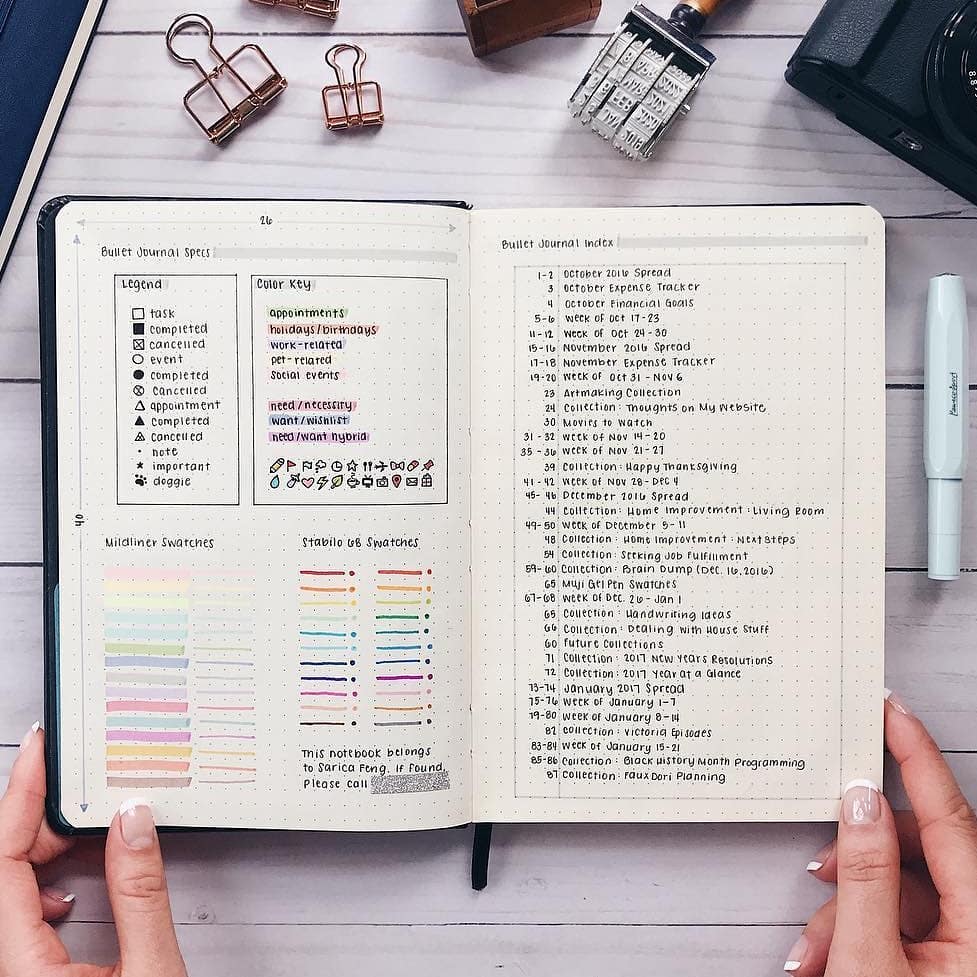 26
Bullet Journal Specs
Legend
task
completed
cancelled
event
completed
Cancelled
appointment
completed
cancelled
note
important
doggie
Color Key
appointments
holidays/birthdays
work-related
pet-related
social events
need/necessity
want/wishlist
need/want hybrid
40
Mildliner Swatches
Stabilo 68 Swatches
This notebook belongs
to Sarica Feng. If found,
please call
Bullet Journal Index
1-2 October 2016 Spread
3 October Expense Tracker
4 October Financial Goals
5-6 Week of Oct 17-23
11-12 Week of Oct 24-30
15-16 November 2016 Spread
17-18 November Expense Tracker
19-20 Week of Oct 31 - Nov 6
23 Artmaking Collection
24 Collection: Thoughts on My Website
30 Movies to Watch
31-32 Week of Nov 14-20
35-36 Week of Nov 21-27
39 Collection: Happy Thanksgiving
41-42 Week of Nov 28-Dec 4
45-46 December 2016 Spread
44 Collection: Home Improvement: Living Room
49-50 Week of December 5-11
48 Collection: Home Improvement: Next Steps
54 Collection: Seeking Job Fulfillment
59-60 Collection: Brain Dump (Dec. 16, 2016)
65 Muji Gel Pen Swatches
67-68 Week of Dec. 26 - Jan 1
65 Collection: Handwriting Ideas
66 Collection: Dealing with House Stuff
60 Future Collections
71 Collection: 2017 New Years Resolutions
72 Collection: 2017 Year at a Glance
73-74 January 2017 Spread
75-76 Week of January 1-7
79-80 Week of January 8-14
82 Collection: Victoria Episodes
83-84 Week of January 15-21
85-86 Collection: Black History Month Programming
87 Collection: Faux Dori Planning